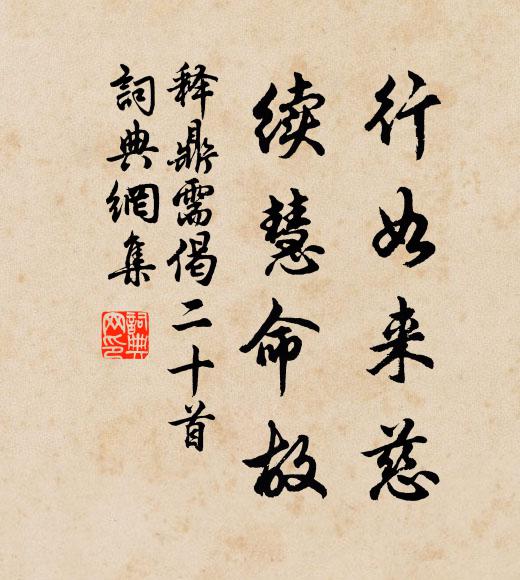 行如来慈
续慧命故
释鼎需偈二十首
詞典網集
詞典
网印